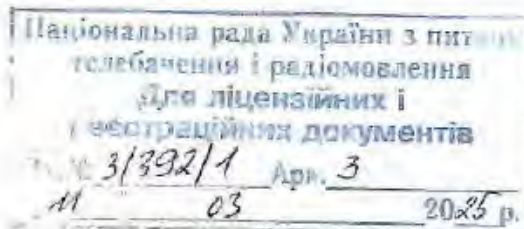 Національна рада України з пит
телебачення і радіомовлення
Для ліцензійних і
реєстраційних документів
№ 3/392/1 Арк. 3
11 03 2025 р.